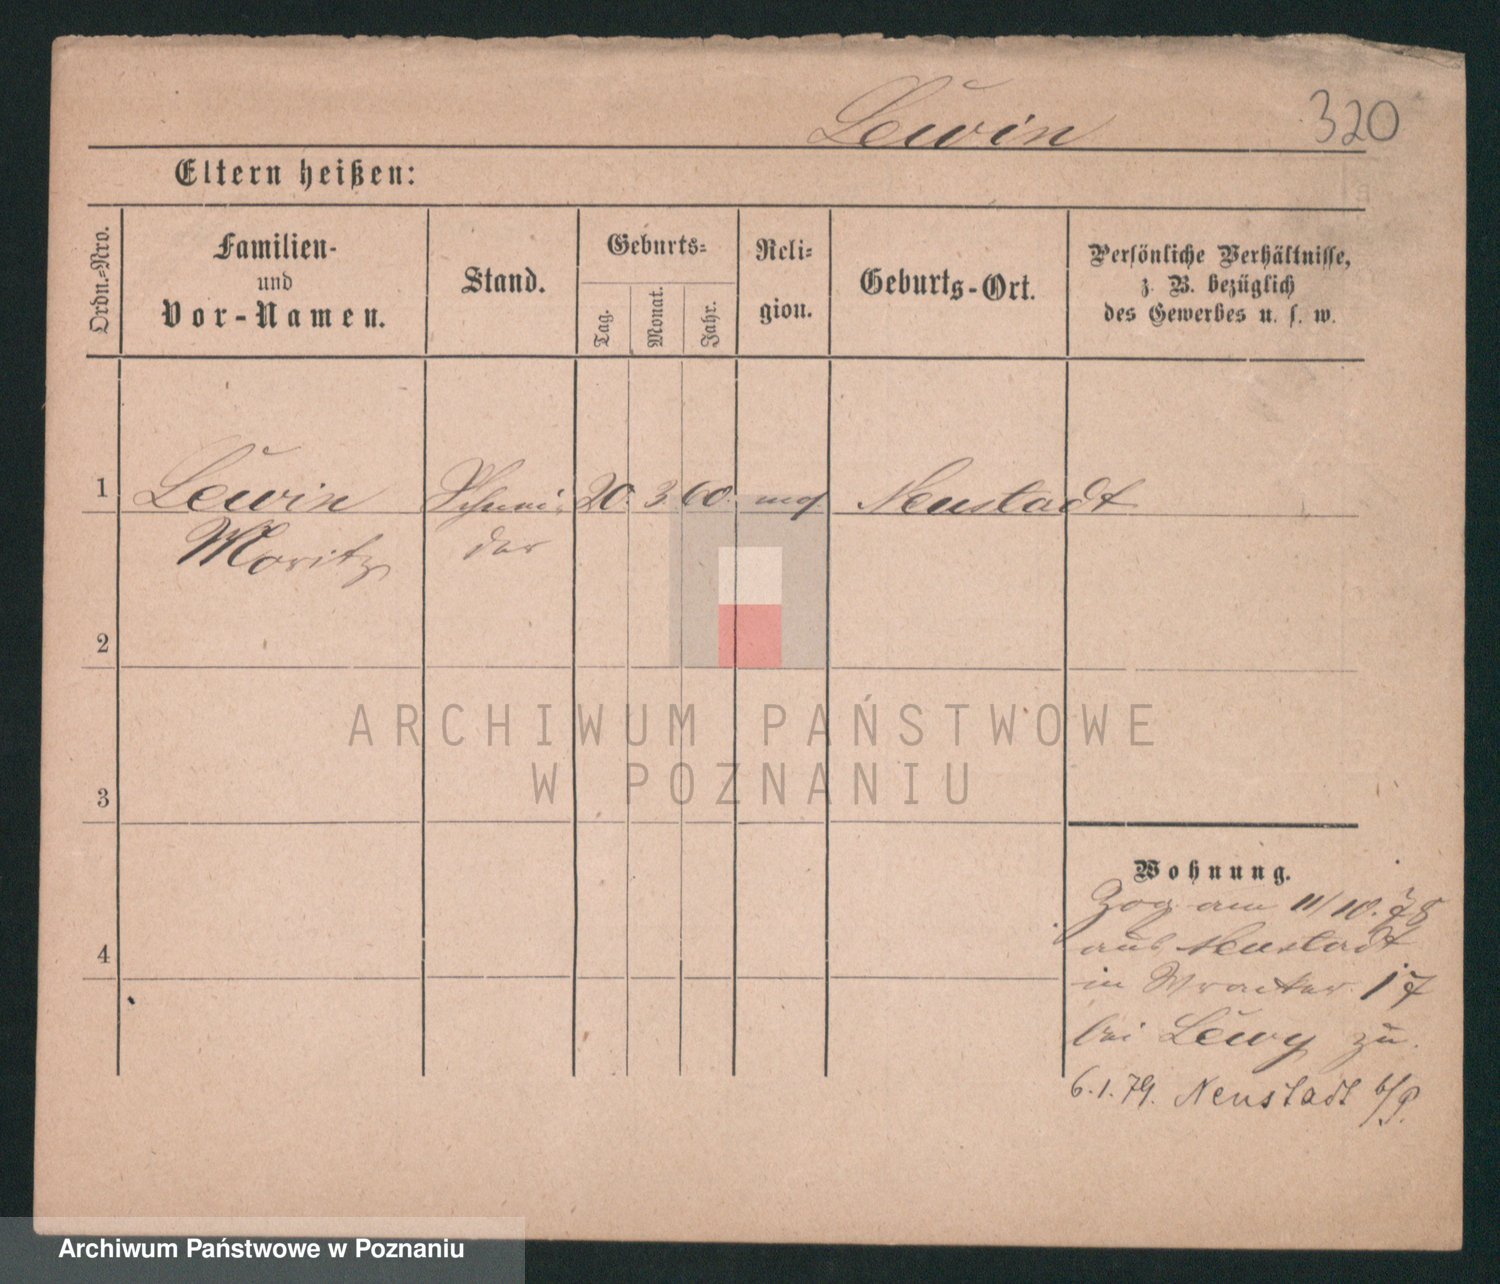 Lewin 320
Eltern heißen:
Ordn.-Nro.
Familien-
und
Vor-Namen.
Stand.
Geburts-
Tag.
Monat.
Jahr.
Reli-
gion.
Geburts-Ort.
Persönliche Verhältnisse,
z. B. bezüglich
des Gewerbes u. s. w.
1 Lewin Schnei- 20. 3. 60. mos Neustadt
Moritz der
2
3
4
Wohnung.
Zog am 11/10. 78
aus Neustadt
in 17
bei Lewy zu.
6.1.79. Neustadt b/P.
ARCHIWUM PAŃSTWOWE
W POZNANIU
Archiwum Państwowe w Poznaniu